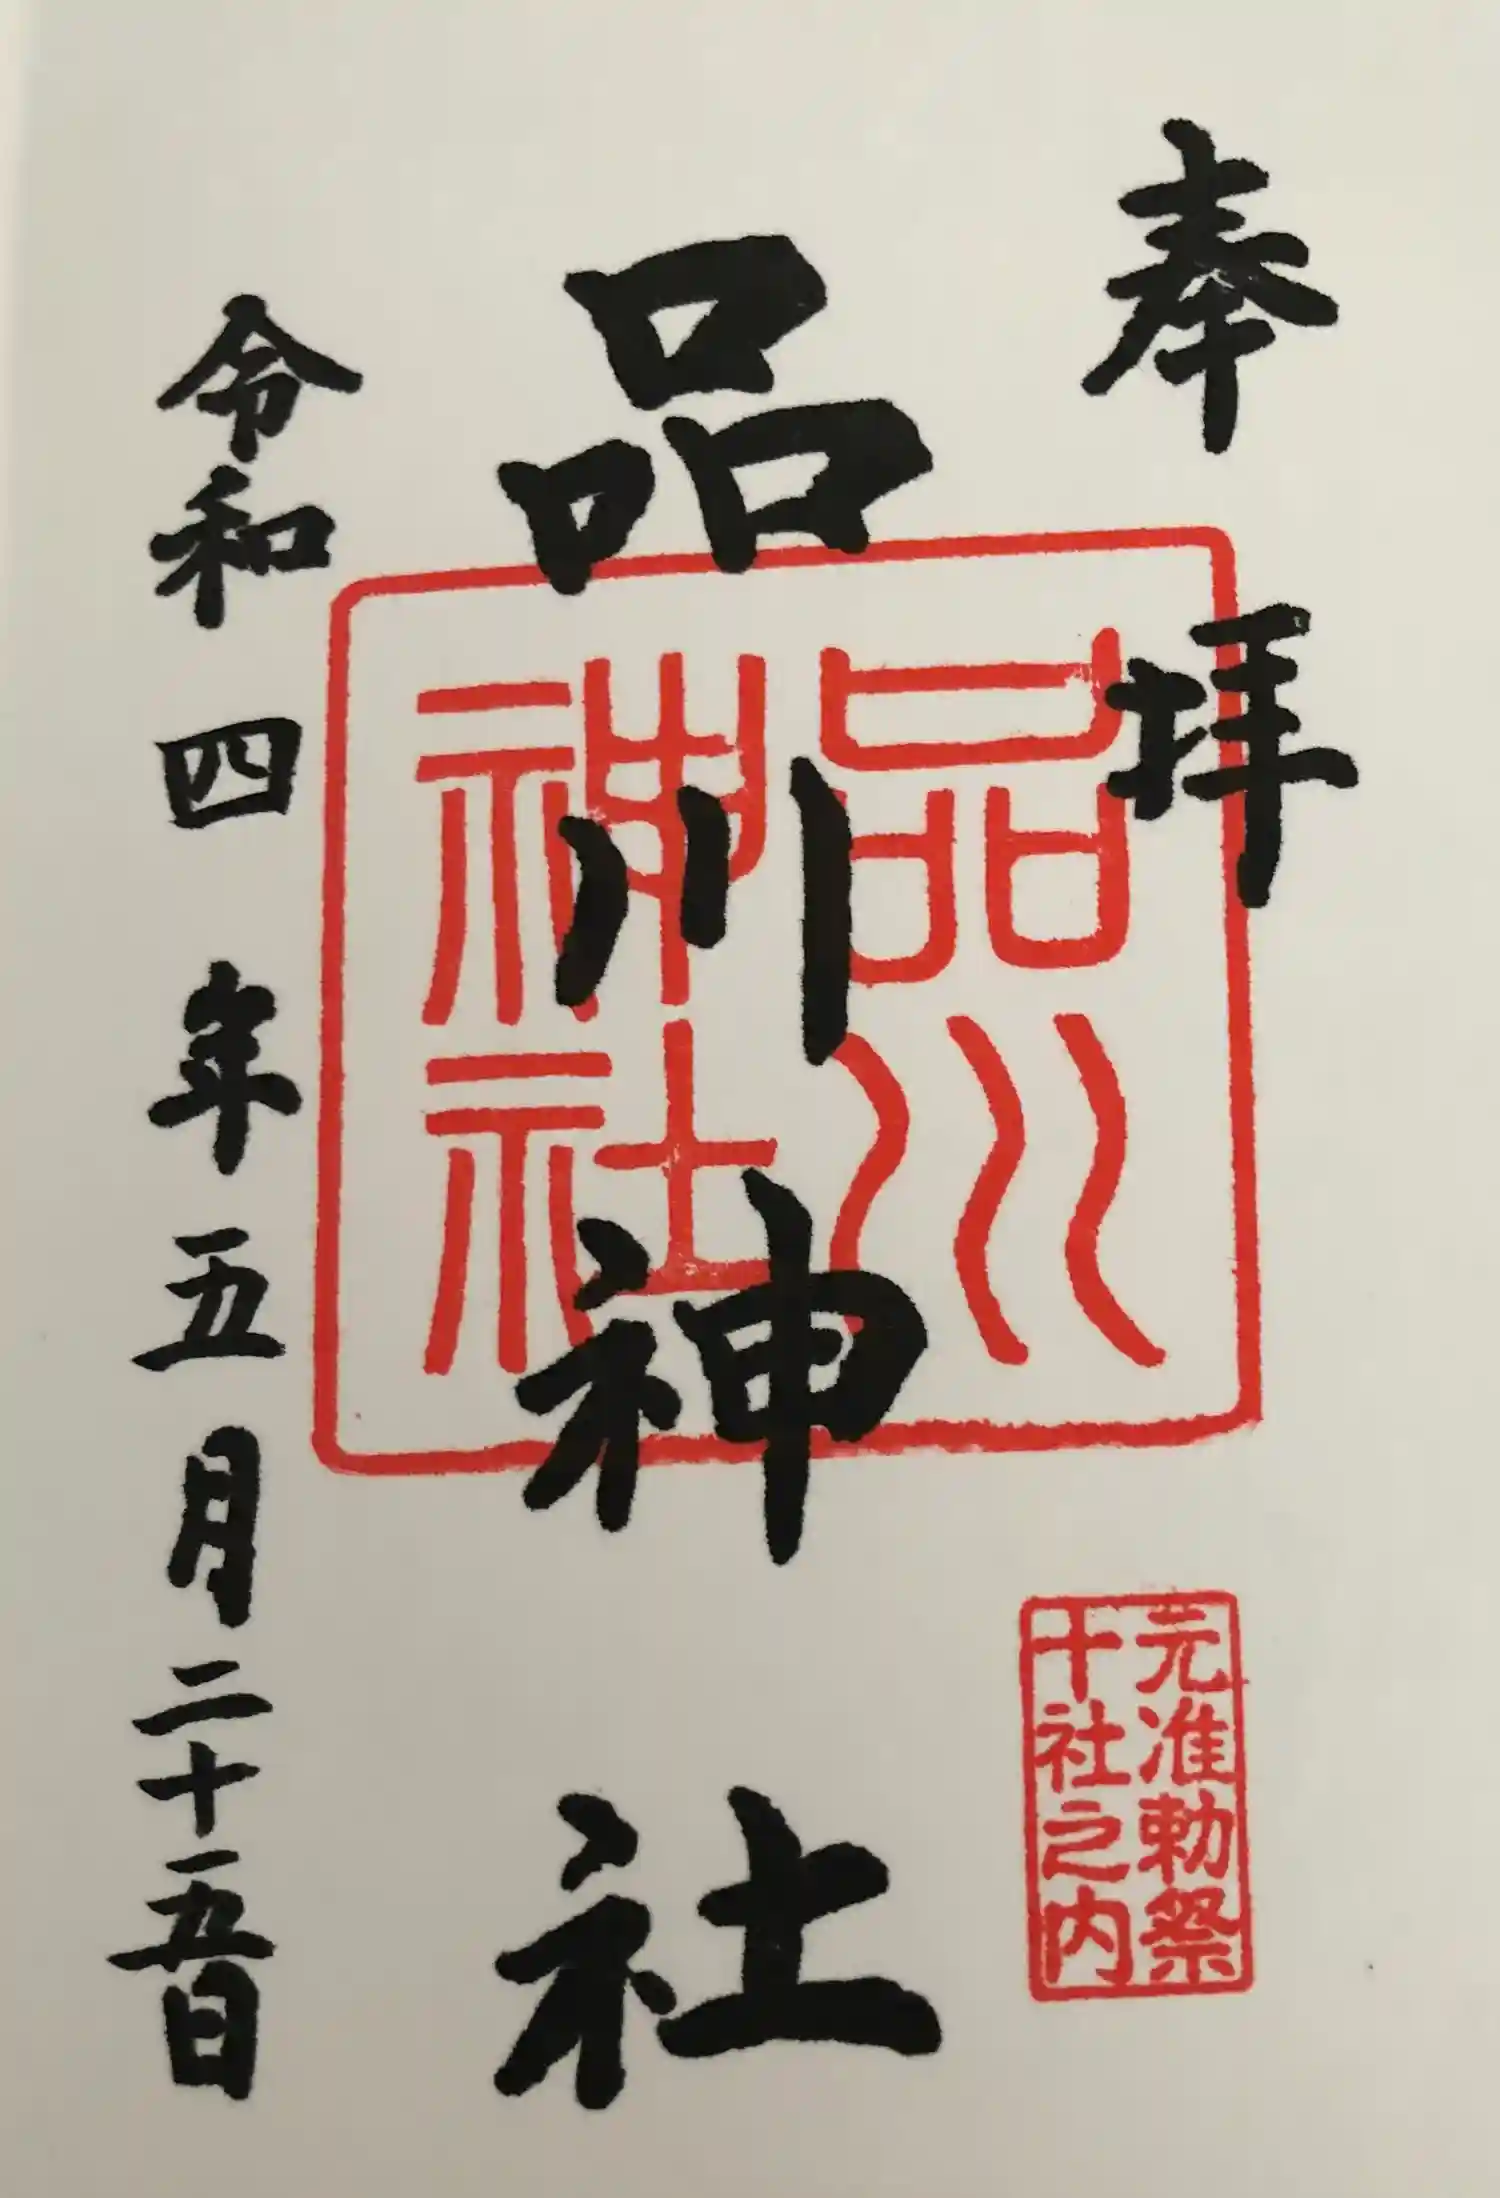 奉拝
品川神社
品川
神社
元准勅祭
十社之内
令和四年五月二十五日